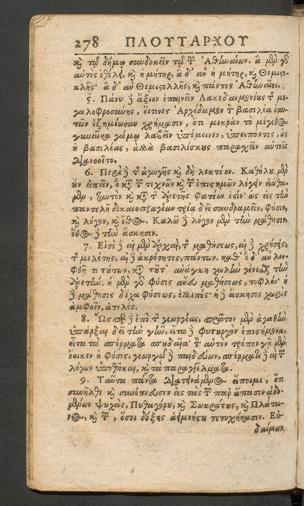 278 ΠΛΟΥΤΑΡΧΟΥ
κὴ τῷ δήμῳ συνδοκεῖν τῷ τ Ἀθηναίων. ἃ μὲν γὸ
αὐτὸς ἐθέλει, κὴ ἡ μήτηρ, ἃ δ' ἂν ἡ μήτηρ, κὴ Θεμιςο-
κλῆς· ἃ δ' ἂν Θεμιςοκλῆς, κὴ πάντες Ἀθηναῖοι.
5. Πάνυ ἢ ἄξιον ἐπαινεῖν Λακεδαιμονίους τ με-
γαλοφροσύνης, οἵτινες Ἀρχίδαμον τ βασιλέα ἑαυ-
τῶν ἐζημίωσαν χρήμασιν, ὅτι μικρὰν τὸ μέγεθος
γυναῖκα γάμῳ λαβεῖν ὑπέμεινεν, ὑπειπόντες, ὡς
οὐ βασιλέας, ἀλλὰ βασιλίσκους παραχεῖν αὐτοῖς
διανοοῖτο.
6. Περὶ ἢ τ ἀγωγῆς κὴ δὴ λεκτέον. Καθόλου μὲν
οὖν εἰπεῖν, ὃ κτ τ τεχνῶν κὴ τ ἐπιςημῶν λέγειν εἰώθα-
μεν, ταυτὸν κὴ κτ τ ἀρετῆς φατέον ἐςὶν· ὡς εἰς τὴν
παντελῆ δικαιοπραγίαν τρία δεῖ συνδραμεῖν, φύσιν,
κὴ λόγον, κὴ ἔθος. Καλῶ ἢ λόγον μὲν τὴν μάθησιν,
ἔθος ἢ τὴν ἄσκησιν.
7. Εἰσὶ ἢ αἱ μὲν ἀρχαὶ, τ μαθήσεως, αἱ ἢ χρήσεις,
τ μελέτης, αἱ ἢ ἀκρότητες, πάντων. καθ' ὃ δ' ἂν λει-
φθῇ τι τούτων, κτ τοῦτ' ἀνάγκη χωλὴν γίνεσθαι τὴν
ἀρετὴν. ἡ μὲν γὸ φύσις ἄνευ μαθήσεως, τυφλόν· ἡ
ἢ μάθησις δίχα φύσεως, ἐλλιπές· ἡ ἢ ἄσκησις χωρὶς
ἀμφοῖν, ἀτελές.
8. Ὥσπερ ἢ ἐπὶ τ γεωργίας, πρῶτον μὲν ἀγαθὴν
ὑπάρξαι δεῖ τὴν γῆν, εἶτα ἢ φυτουργὸν ἐπιςήμονα,
εἶτα τὰ σπέρματα σπουδαῖα· τ αὐτὸν τρόπον γῇ μὲν
ἔοικεν ἡ φύσις, γεωργῷ ἢ παιδεύων, σπέρματι ἢ αἱ τ
λόγων ὑποθῆκαι, κὴ τὰ παραγγέλματα.
9. Ταῦτα πάντα διατεινάμενος εἴποιμι, ὅτι
συνῆλθε κὴ συνέπνευσεν εἰς τὰς τ παρ' ἅπασιν ἀδο-
μένων ψυχὰς, Πυθαγόρου, κὴ Σωκράτους, κὴ Πλάτω-
νος, κὴ τ, ὅσοι δόξης ἀειμνήςου τετυχήκασιν. Εὐ-
δαίμον